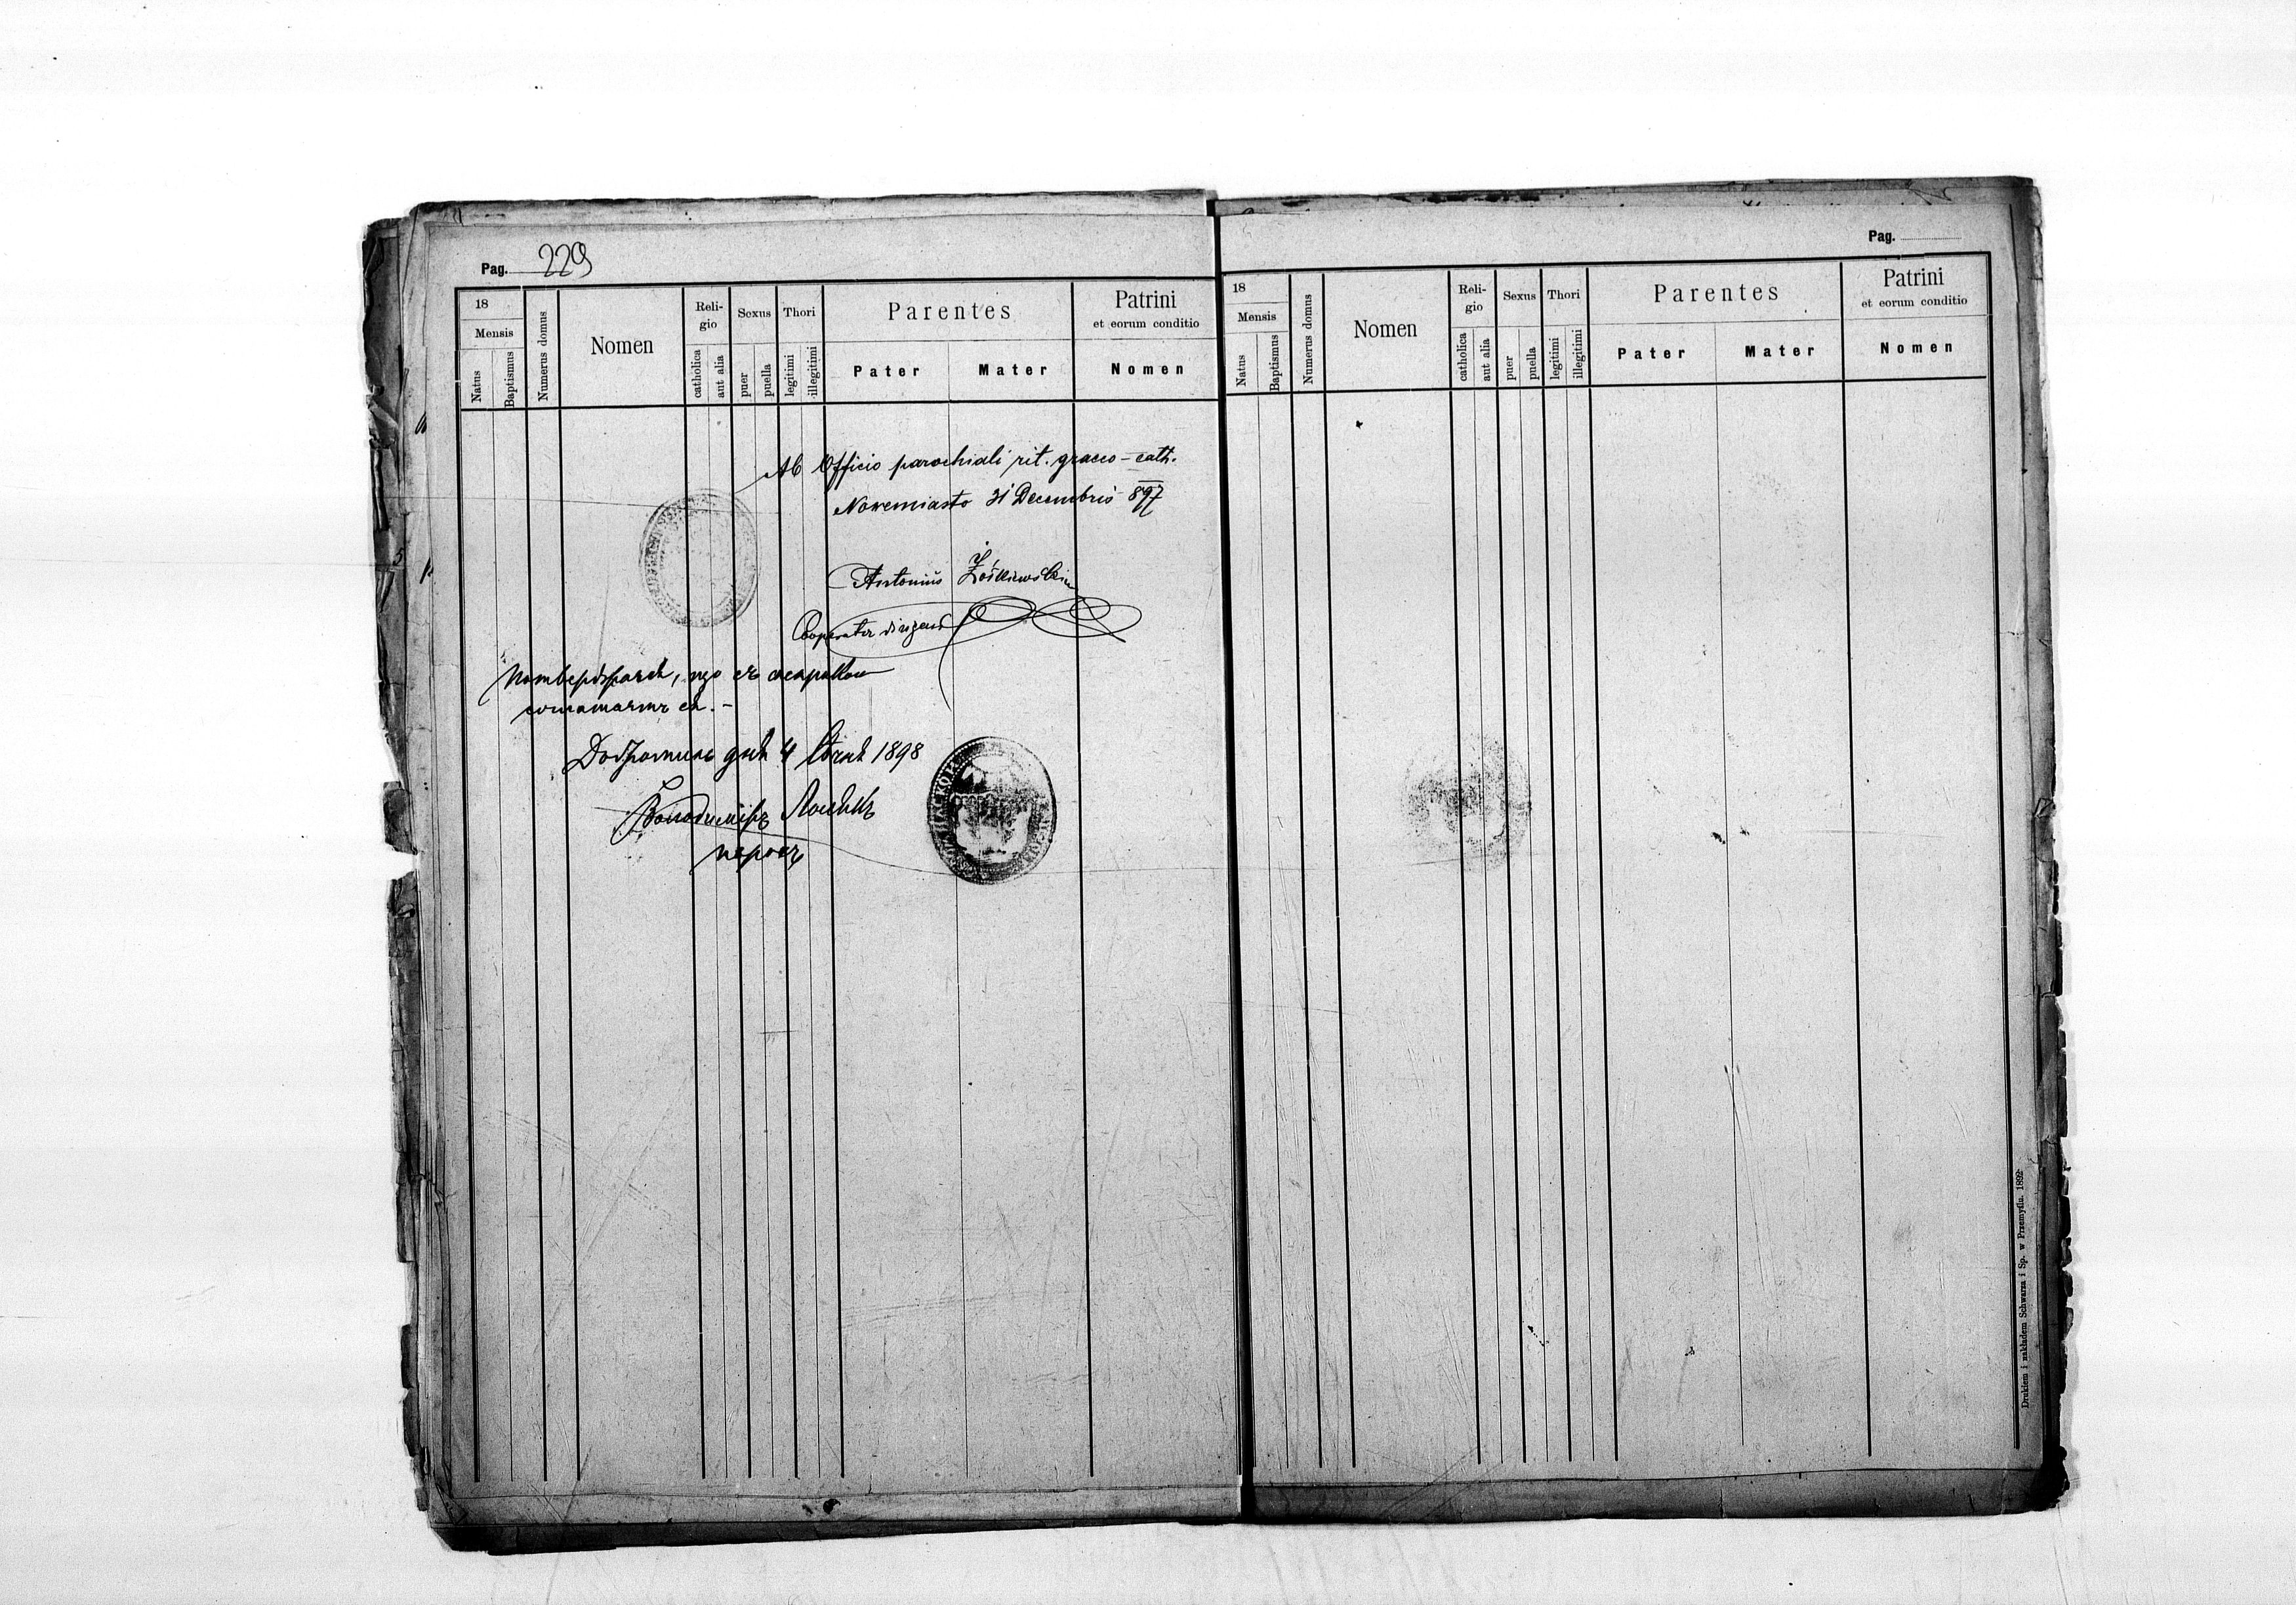 Pag. 229
18
Mensis
Natus
Baptismus
Numerus domus
Nomen
Reli-
gio
catholica
aut alia
Sexus
puer
puella
Thori
legitimi
illegitimi
Parentes
Pater
Mater
Patrini
et eorum conditio
Nomen
Ab Officio parochiali rit. graeco-cath.
Nowemiasto 31 Decembris 897
Antonius
Cooperator dirigens
що съ
Добромиль дня 4 Сѣчня 1898
Володимiръ
парохъ
Pag.
18
Mensis
Natus
Baptismus
Numerus domus
Nomen
Reli-
gio
catholica
aut alia
Sexus
puer
puella
Thori
legitimi
illegitimi
Parentes
Pater
Mater
Patrini
et eorum conditio
Nomen
Drukiem i nakładem Schwarza i Sp. w Przemyślu.